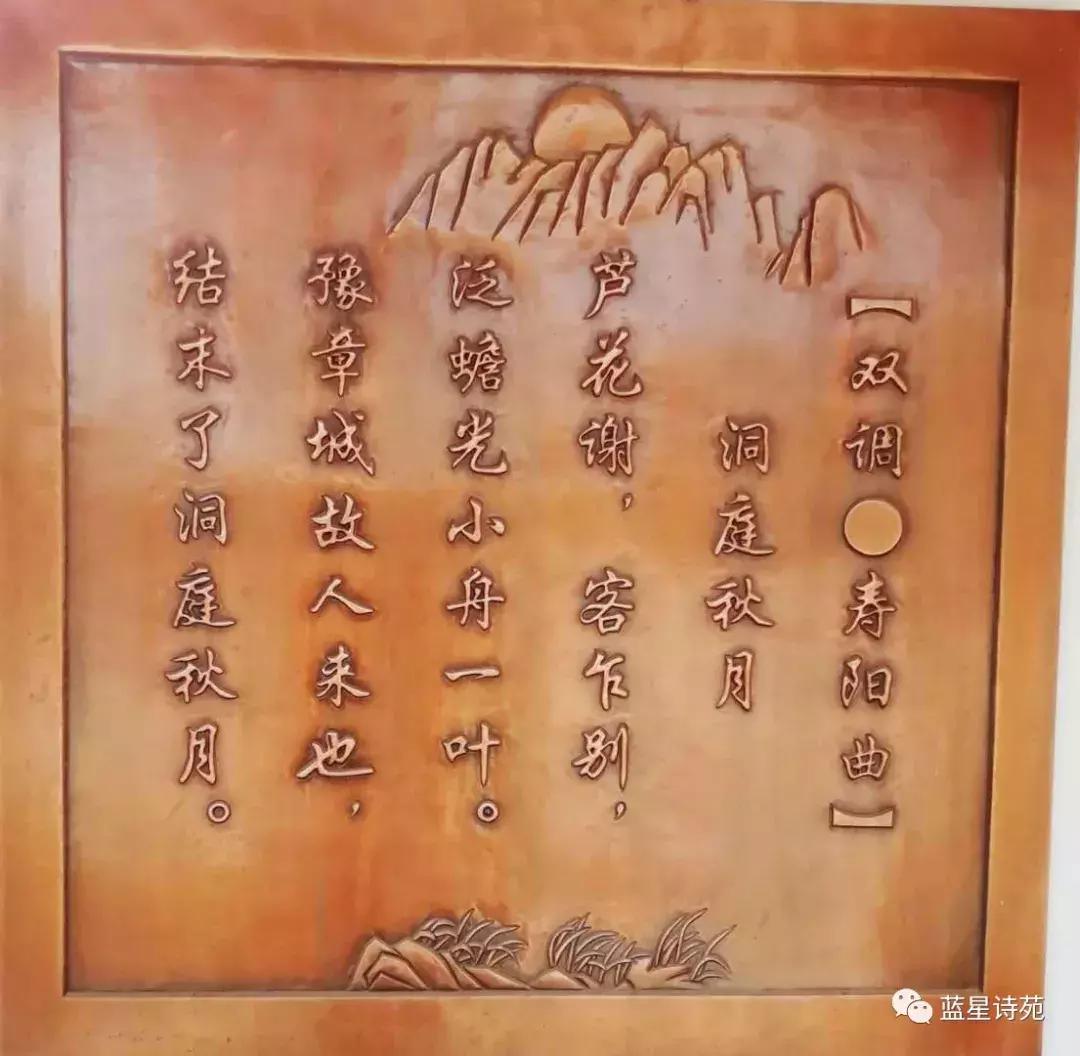 【双调●寿阳曲】
洞庭秋月
芦花谢，客乍别，
泛蟾光小舟一叶。
豫章城故人来也，
结末了洞庭秋月。
蓝星诗苑